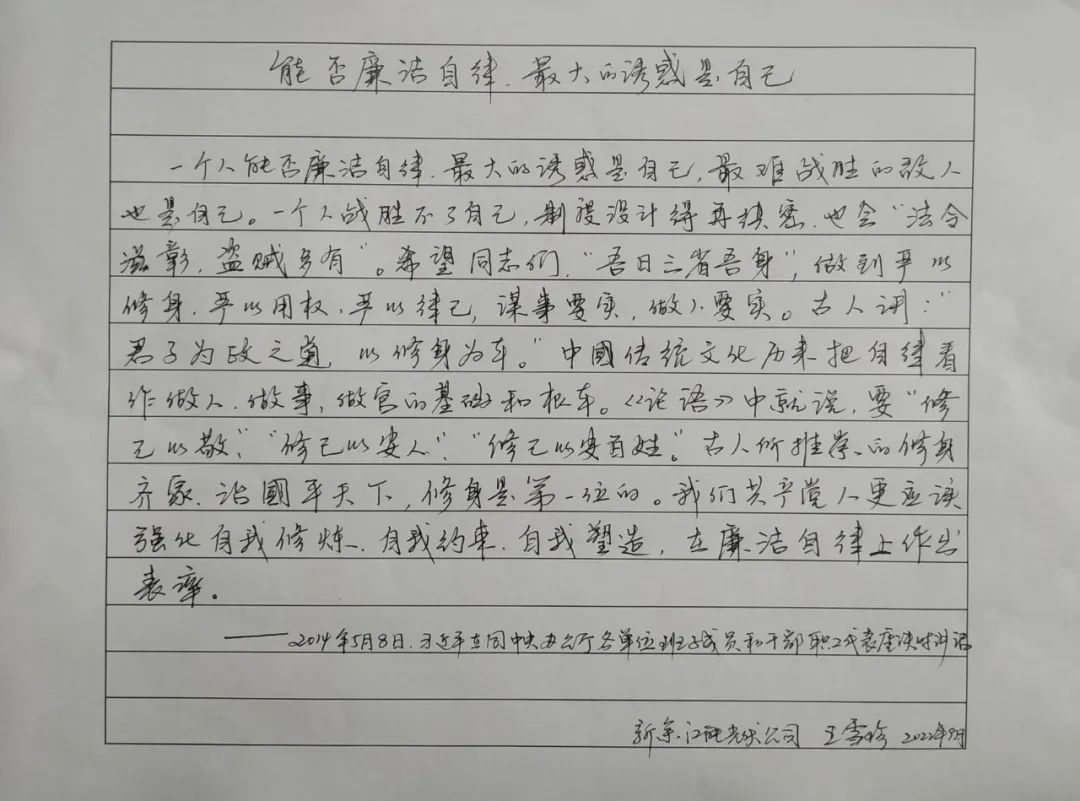 能否廉洁自律.最大的诱惑是自己
一个人能否廉洁自律.最大的诱惑是自己,最难战胜的敌人
也是自己。一个人战胜不了自己,制度设计得再缜密.也会“法令
滋彰,盗贼多有”。希望同志们,“吾日三省吾身”,做到严以
修身.严以用权.严以律己,谋事要实,做人要实。古人讲:“
君子为政之道,以修身为本。”中國传统文化历来把自律看
作做人.做事,做官的基础和根本。《论语》中就说,要“修
己以敬”、“修己以安人”、“修己以安百姓。”古人所推崇的修身
齐家.治國平天下,修身是第一位的。我们共产党人更应该
强化自我修炼.自我约束.自我塑造,在廉洁自律上作出
表率。
——2014年5月8日.习近平在同中央办公厅各单位班子成员和干部职工代表座谈时讲话
公司 王雪珍 2022年9月